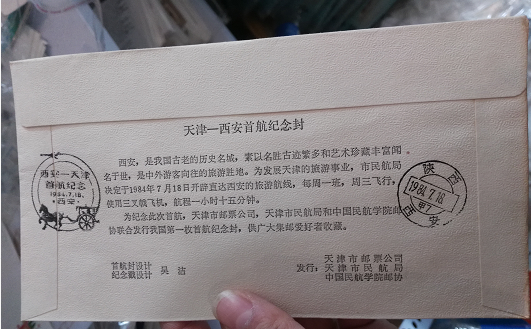 天津—西安首航纪念封
西安，是我国古老的历史名城，素以名胜古迹繁多和艺术珍藏丰富闻
名于世，是中外游客向往的旅游胜地。为发展天津的旅游事业，市民航局
决定于1984年7月18日开辟直达西安的旅游航线，每周一班，周三飞行，
使用三叉戟飞机，航程一小时十五分钟。
为纪念此次首航，天津市邮票公司，天津市民航局和中国民航学院邮
协联合发行我国第一枚首航纪念封，供广大集邮爱好者收藏。
西安—天津
首航纪念
1984.7.18.
西安
陕西
1984.7.18
西安
首航封设计
纪念戳设计
吴洁
发行：
天津市邮票公司
天津市民航局
中国民航学院邮协